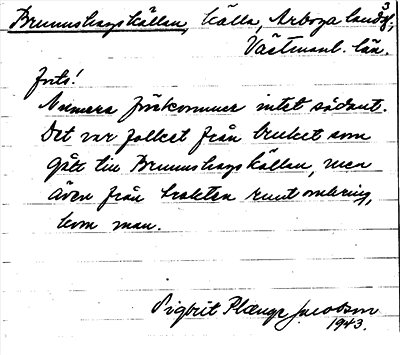 3
Brunnshagskällan, källa, Arboga landsf,
Västmanl. län.
forts!
Numera förekommer intet sådant.
Det var folket från bruket som
gått till Brunnshagskällan, men
även från trakten runtomkring,
kom man.
Sigbrit Plænge Jacobson
1943.